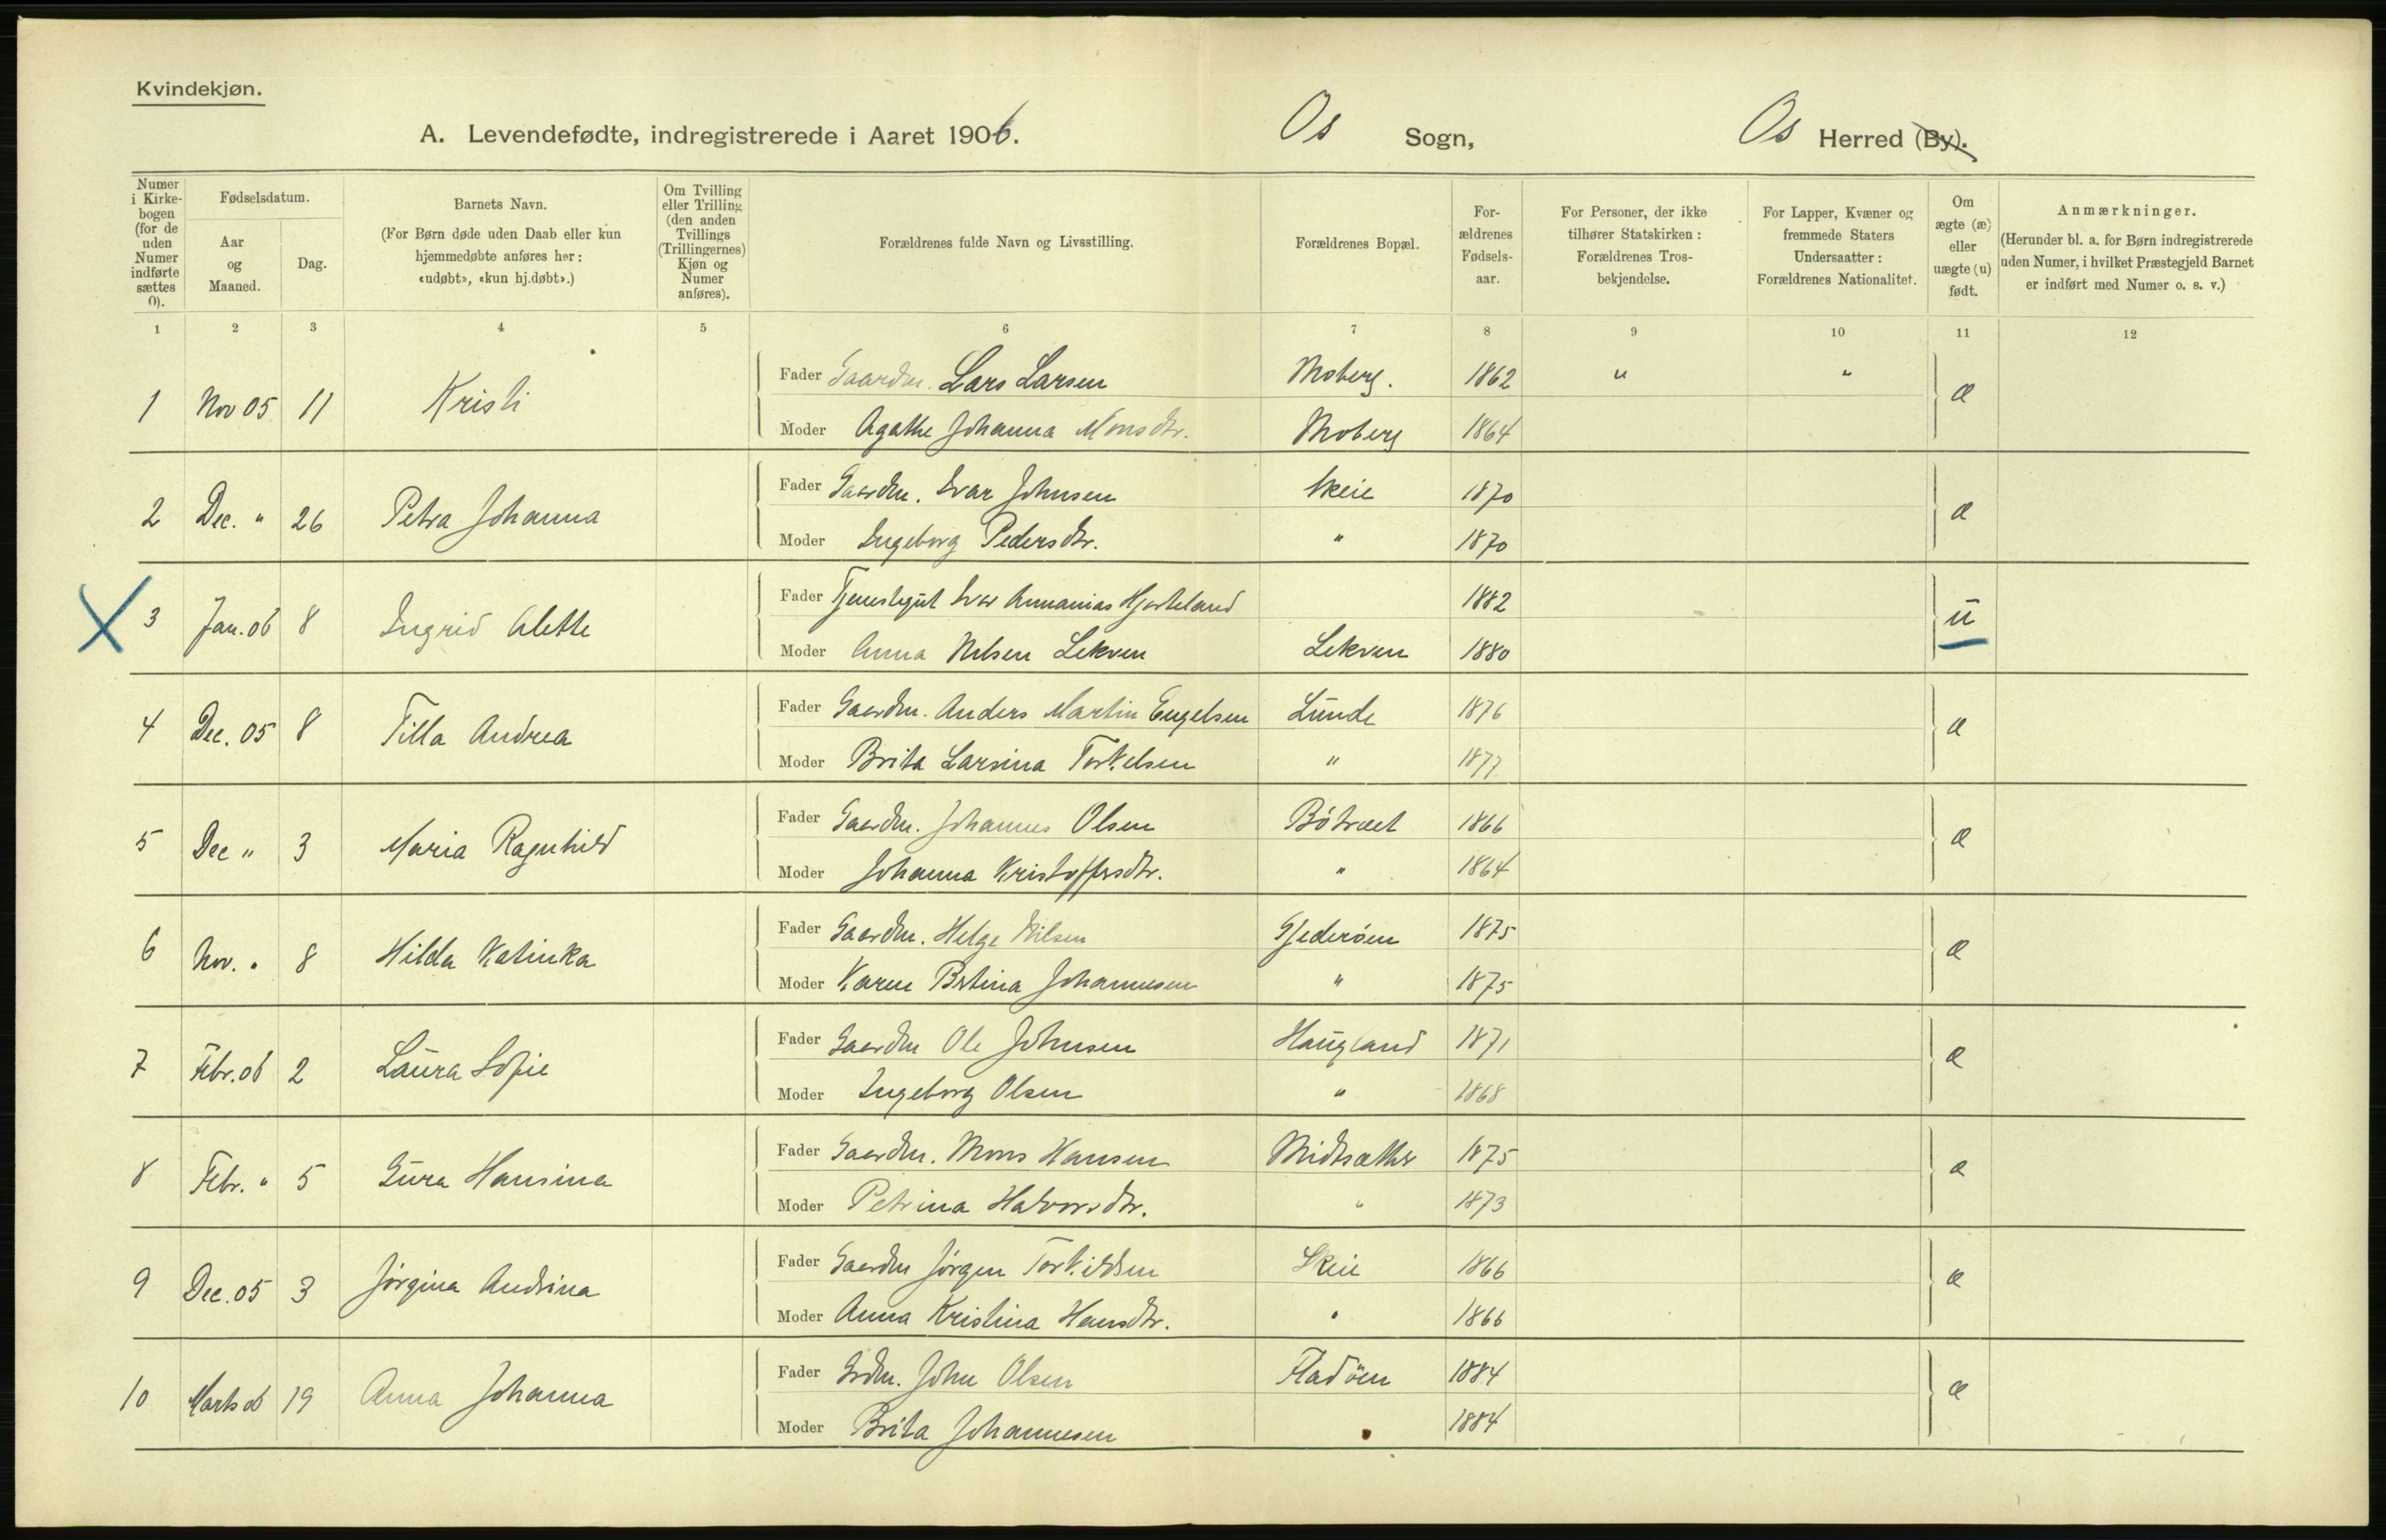 Kvindekjøn.
A. Levendefødte, indregistrerede i Aaret 1906. Os Sogn, Os Herred (By).
Numer i Kirkebogen (for de uden Numer indførte sættes 0).
Fødselsdatum.
Aar og Maaned.
Dag.
Barnets Navn.
(For Børn døde uden Daab eller kun hjemmedøbte anføres her: «udøbt», «kun hj.døbt».)
Om Tvilling eller Trilling (den anden Tvillings (Trillingernes) Kjøn og Numer anføres).
Forældrenes fulde Navn og Livsstilling.
Forældrenes Bopæl.
Forældrenes Fødselsaar.
For Personer, der ikke tilhører Statskirken: Forældrenes Trosbekjendelse.
For Lapper, Kvæner og fremmede Staters Undersaatter: Forældrenes Nationalitet.
Om ægte (æ) eller uægte (u) født.
Anmærkninger.
(Herunder bl. a. for Børn indregistrerede uden Numer, i hvilket Præstegjeld Barnet er indført med Numer o. s. v.)
1 2 3 4 5 6 7 8 9 10 11 12
Fader Gaardm. Lars Larsen Moberg. 1862 " "
1 Nov 05 11 Kristi æ
Moder Agathe Johanna Monsdtr. Moberg 1864
Fader Gaardm. Ivar Johnsen Skeie 1870
2 Dec. " 26 Petra Johanna æ
Moder Ingeborg Pedersdtr. " 1870
Fader Tjenestegut Ivar Annanias Hjorteland 1882
3 Jan. 06 8 Ingrid Alette u
Moder Anna Nilsen Lekven Lekven 1880
Fader Gaardm. Anders Martin Engelsen Lunde 1876
4 Dec. 05 8 Tilla Andrea æ
Moder Brita Larsina Torkelsen " 1877
Fader Gaardm. Johannes Olsen 1866
5 Dec " 3 Maria Ragnhild æ
Moder Johanna Kristoffersdtr. " 1864
Fader Gaardm. Helge Nilsen Gjederöen 1875
6 Nov. " 8 Hilda Katinka æ
Moder Karen Bertina Johannesen " 1875
Fader Gaardm Ole Johnsen Haugland 1871
7 Febr. 06 2 Laura Sofie æ
Moder Ingeborg Olsen " 1868
Fader Gaardm. Mons Hansen Midtsæther 1875
8 Febr. " 5 Gura Hansina æ
Moder Petrina Halvorsdtr. " 1873
Fader Gaardm Jörgen Torkildsen Skeie 1866
9 Dec. 05 3 Jörgina Andrina æ
Moder Anna Kristina Hansdtr. " 1866
Fader Grdm. John Olsen Fladöen 1884
10 Marts 06 19 Anna Johanna æ
Moder Brita Johannesen " 1884